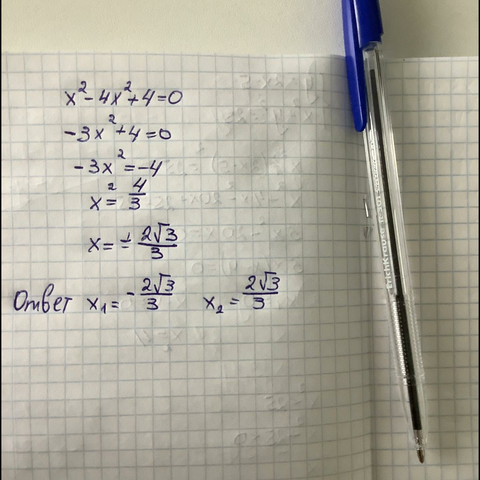 x²-4x²+4=0
-3x²+4=0
-3x²=-4
x²=4/3
x=±2√3/3
Ответ x₁=-2√3/3 x₂=2√3/3
ErichKrause